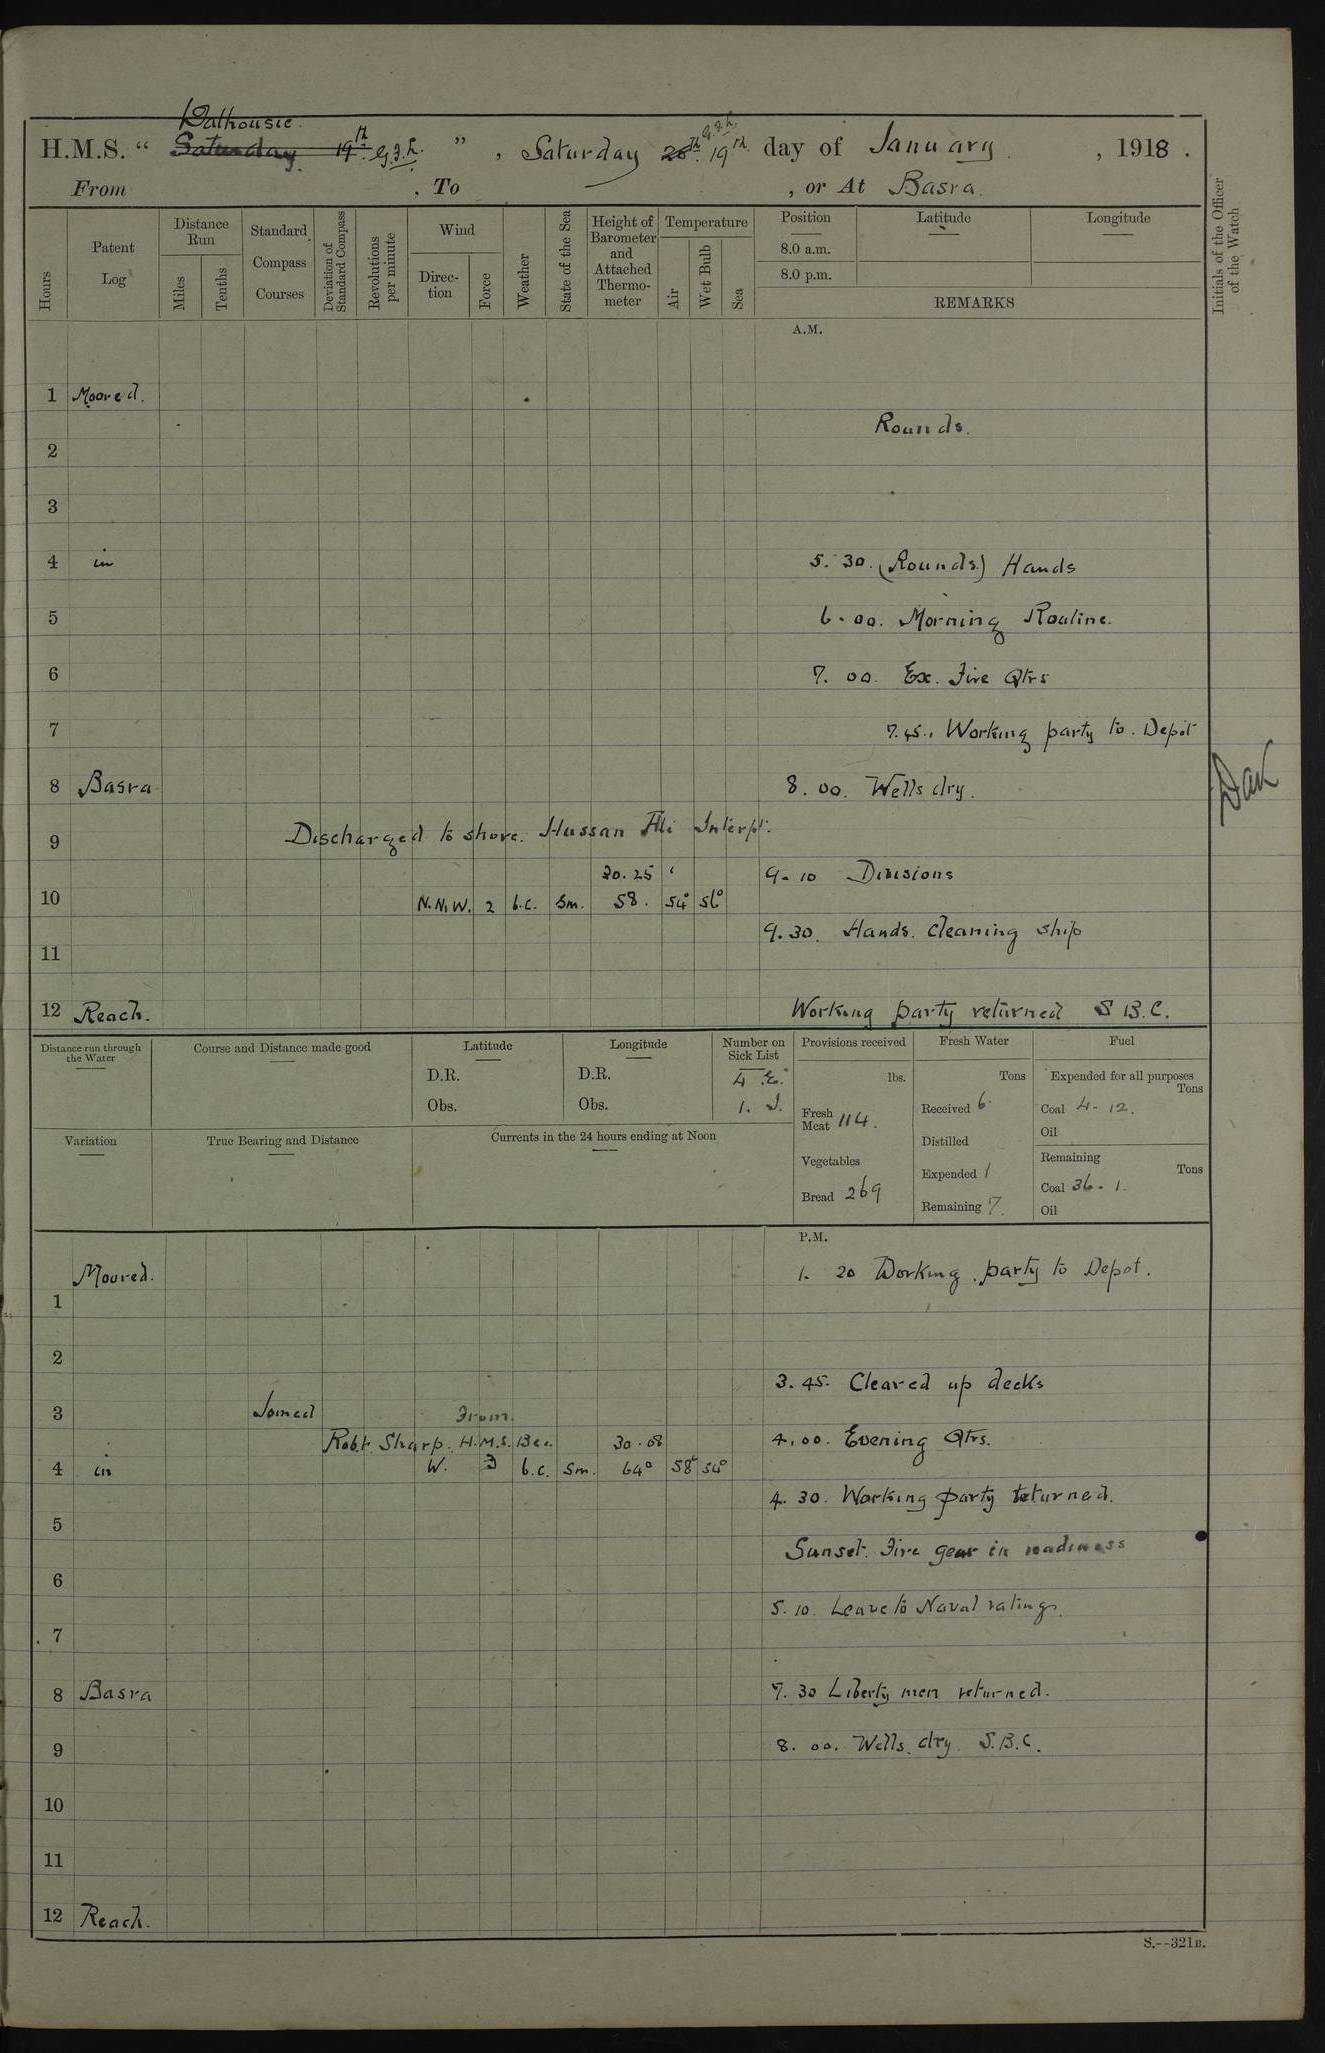 Dalhousie
H.M.S. " Saturday 19th G.F.L. " , Saturday 20th 19th G.F.L. day of January , 1918 .
From , To , or At Basra.
Hours
Patent Log
Distance Run
Miles
Tenths
Standard Compass Courses
Deviation of Standard Compass
Revolutions per minute
Wind
Direction
Force
Weather
State of the Sea
Height of Barometer and Attached Thermometer
Temperature
Air
Wet Bulb
Sea
Position
8.0 a.m.
8.0 p.m.
Latitude
Longitude
REMARKS
Initials of the Officer of the Watch
A.M.
1 Moored.
Rounds.
2
3
4 in 5.30. (Rounds.) Hands
5 6.00. Morning Routine.
6 7.00. Ex. Fire Qtrs
7 7.45. Working party to. Depôt
8 Basra 8.00. Wells dry.
9 Discharged to shore. Hussan Ali Interpt.
30.25 9.10 Divisions
10 N.N.W. 2 b.c. Sm. 58. 54° 56°
9.30. Hands. cleaning ship
11
12 Reach. Working party returned S B.C.
Distance run through the Water
Course and Distance made good
Latitude
D.R.
Obs.
Longitude
D.R.
Obs.
Number on Sick List
4 E.
1. I.
Provisions received
lbs.
Fresh Meat 114.
Vegetables
Bread 269
Fresh Water
Tons
Received 6
Distilled
Expended 1
Remaining 7.
Fuel
Expended for all purposes
Tons
Coal 4-12.
Oil
Remaining
Tons
Coal 36-1.
Oil
Variation
True Bearing and Distance
Currents in the 24 hours ending at Noon
P.M.
Moored. 1.20 Working party to Depot.
1
2
3.45. Cleared up decks
3 Joined From.
Robt. Sharp. H.M.S. Bee. 30.08 4.00. Evening Qtrs.
4 in W. 3 b.c. Sm. 64° 58° 54°
4.30. Working party returned.
5
Sunset. Fire gear in readiness
6
5.10. Leave to Naval ratings.
7
8 Basra 7.30 Liberty men returned.
9 8.00. Wells. dry S.B.C.
10
11
12 Reach.
S.--321B.